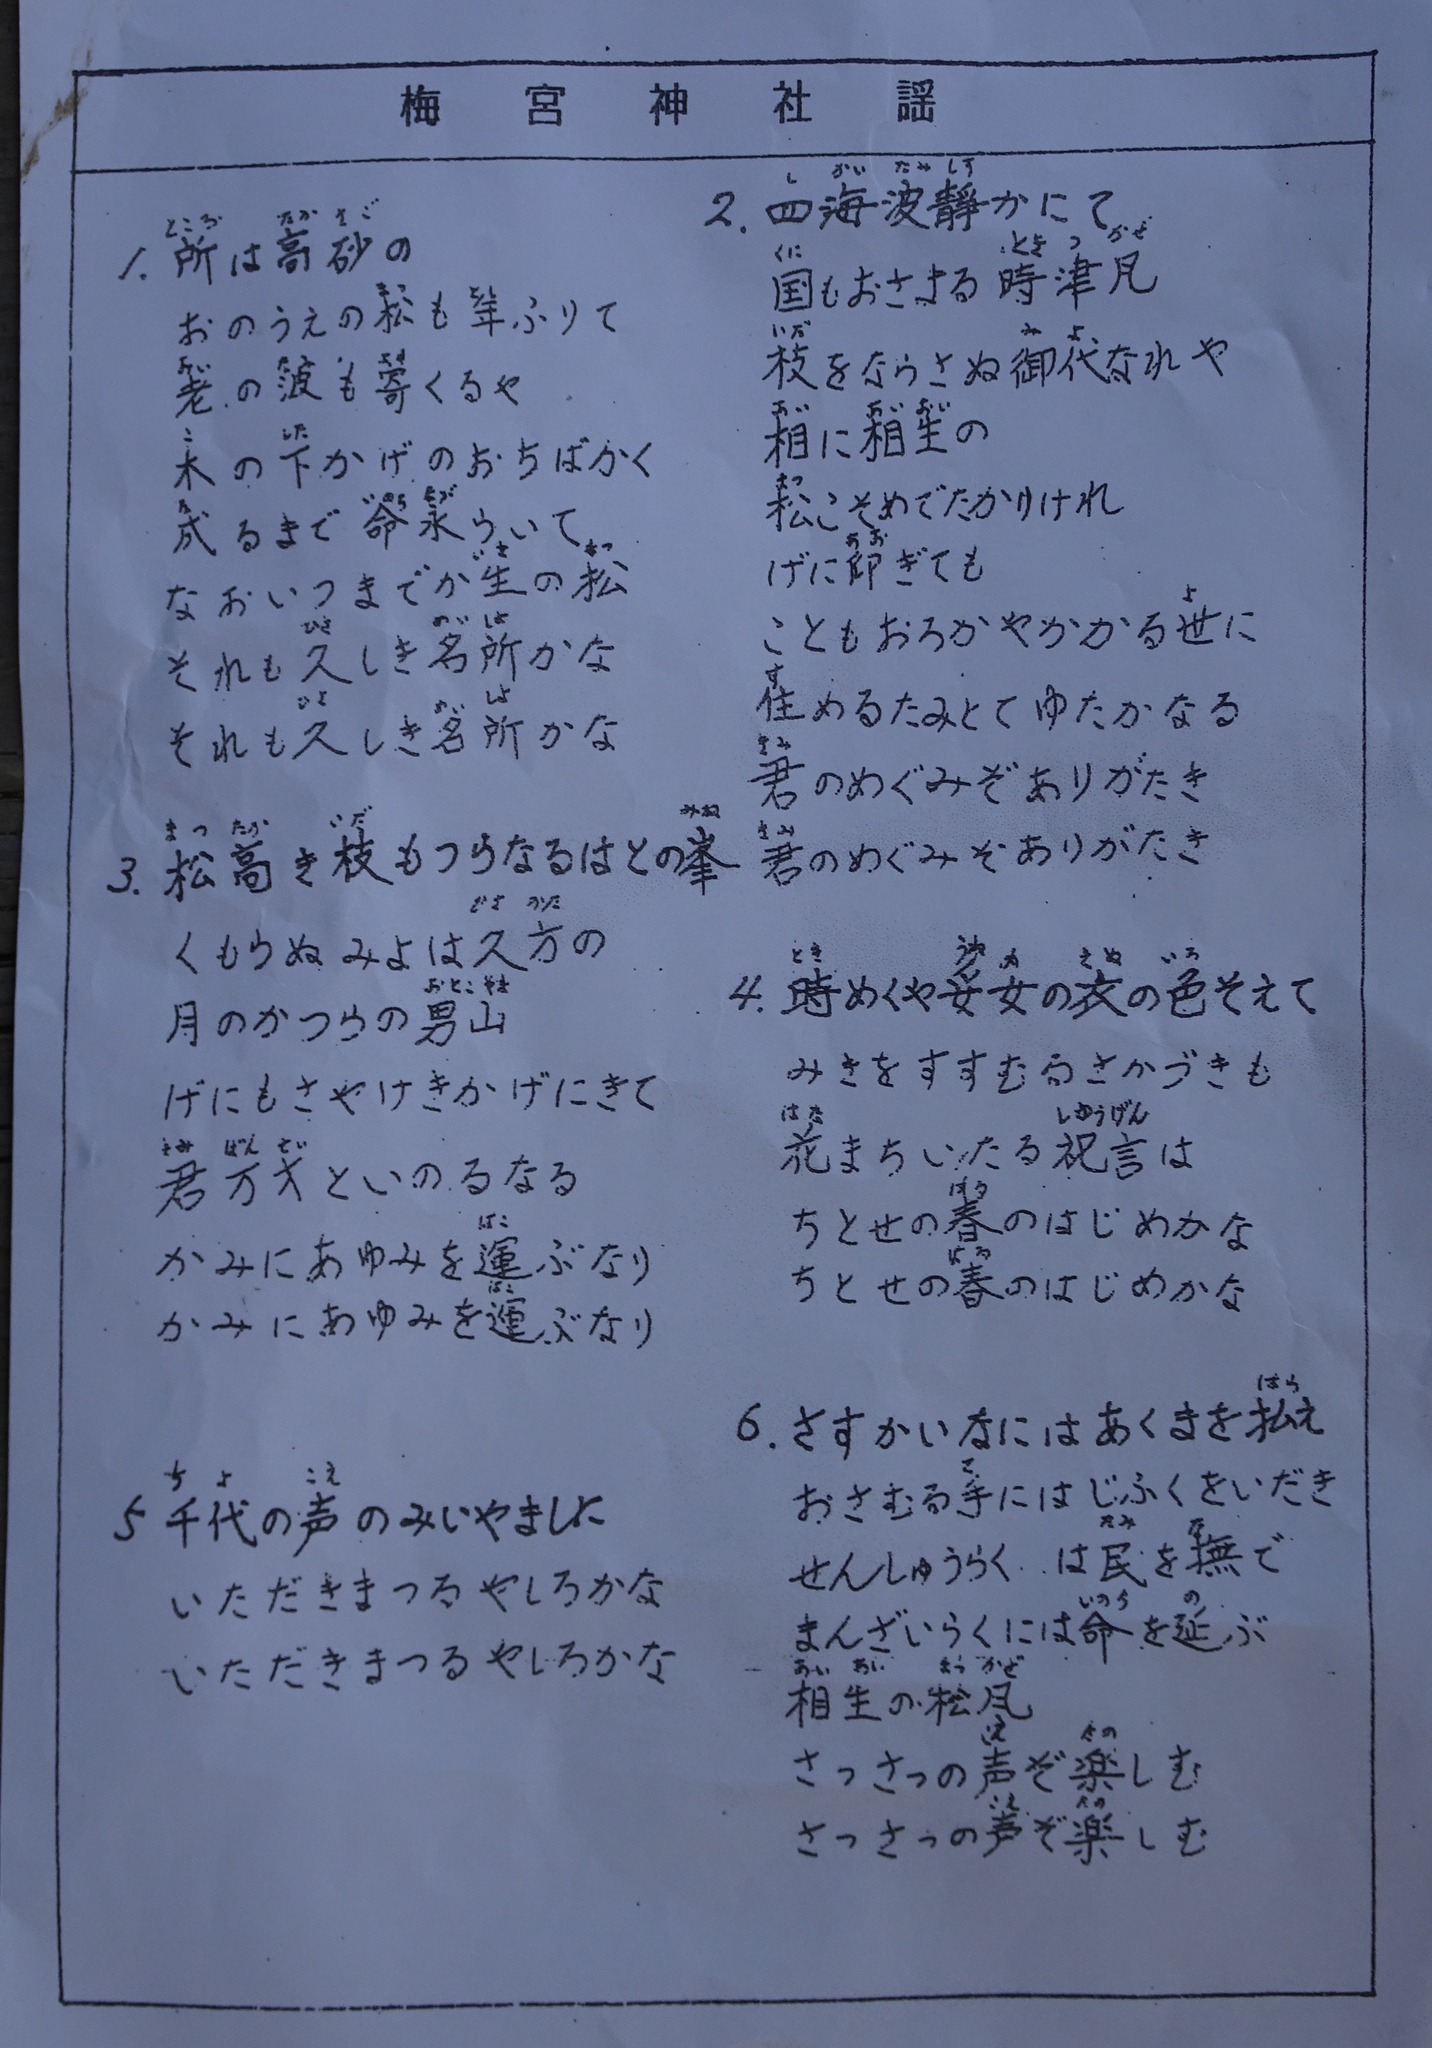 梅宮神社謡
1. 所は高砂の
おのうえの松も年ふりて
老の波も寄くるや
木の下かげのおちばかく
成るまで命永らいて
なおいつまでか生の松
それも久しき名所かな
それも久しき名所かな
2. 四海波静かにて
国もおさまる時津風
枝をならさぬ御代なれや
相に相生の
松こそめでたかりけれ
げに仰ぎても
こともおろかやかかる世に
住めるたみとてゆたかなる
君のめぐみぞありがたき
君のめぐみぞありがたき
3. 松高き枝もつらなるはとの峯
くもらぬみよは久方の
月のかつらの男山
げにもさやけきかげにきて
君万才といのるなる
かみにあゆみを運ぶなり
かみにあゆみを運ぶなり
4. 時めくや
女の衣の色そえて
みきをすすむるさかづきも
花まちいたる祝言は
ちとせの春のはじめかな
ちとせの春のはじめかな
5 千代の声のみいやましに
いただきまつるやしろかな
いただきまつるやしろかな
6. さすかいなにはあくまを払え
おさむる手にはじふくをいだき
せんしゅうらくは民を撫で
まんざいらくには命を延ぶ
相生の松風
さっさっの声ぞ楽しむ
さっさっの声ぞ楽しむ